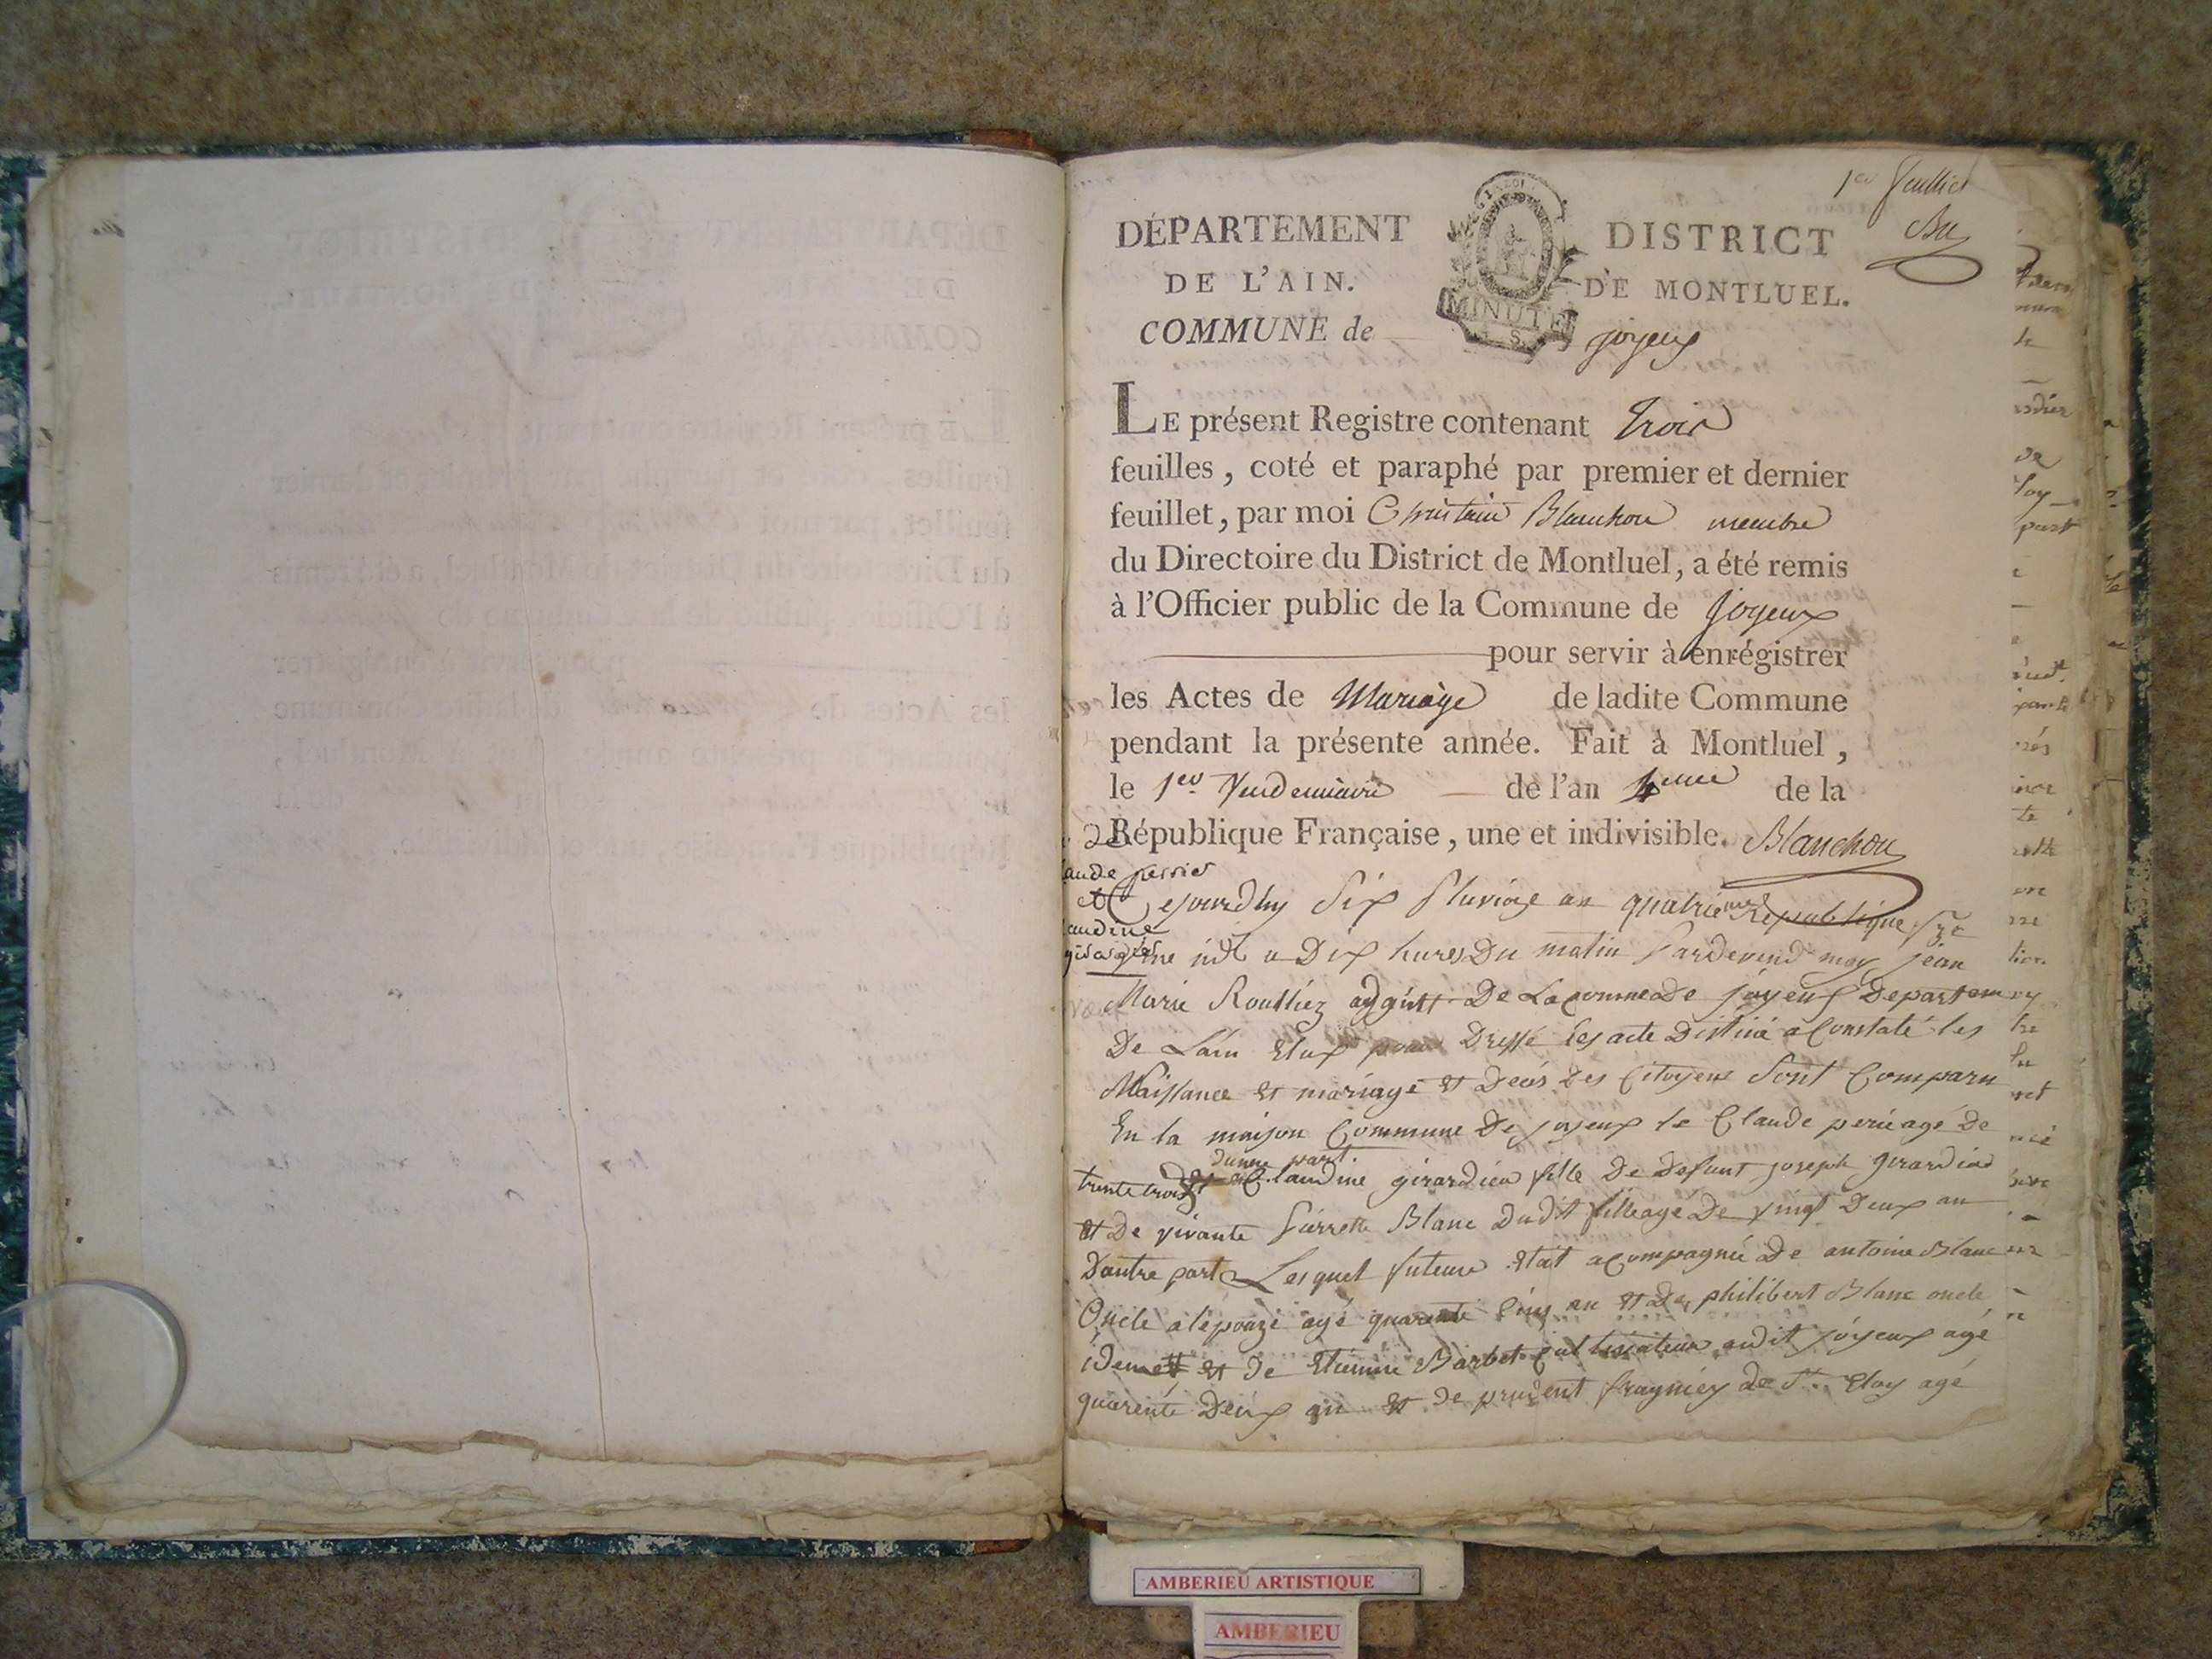 1er feuillet
DÉPARTEMENT
DE L'AIN.
COMMUNE de
MINUTE
DISTRICT
DE MONTLUEL.
joyeux
LE présent Registre contenant trois
feuilles, coté et paraphé par premier et dernier
feuillet, par moi Blanchon membre
du Directoire du District de Montluel, a été remis
à l'Officier public de la Commune de joyeux
pour servir à enrégistrer
les Actes de Mariage de ladite Commune
pendant la présente année. Fait à Montluel,
le 1er Vendemiaire de l'an 4eme de la
République Française, une et indivisible. Blanchon
aude perrier
et
audine
Cejourdhuy Six Pluviose an quatrieme republique
a Dix hures Du matin Pardevend moy jean
Marie De Lacommede joyeux Departem
De Lain Elux pour Dressé les acte Distiné a Constaté les
Naissance et mariage et Decés Des Citoyens Sont Comparu
En la maison Commune De joyeux le Claude perié agé De
trente trois dunne part
et Claudine girardien fille De Defunt joseph girardien
et De vivante Pierrette Blanc Dudit fille agé De vingt Deux an
Dautre part Lesquel futeure etat acompagnée De antoine Blanc
Oncle a lépouze agé quarente Cinq an et De philibert Blanc oncle
idem et De Etienne Barbet Cultivateur audit joyeux agé
quarente Deux an et De prudent fragniey de St Eloy agé
AMBERIEU ARTISTIQUE
AMBERIEU